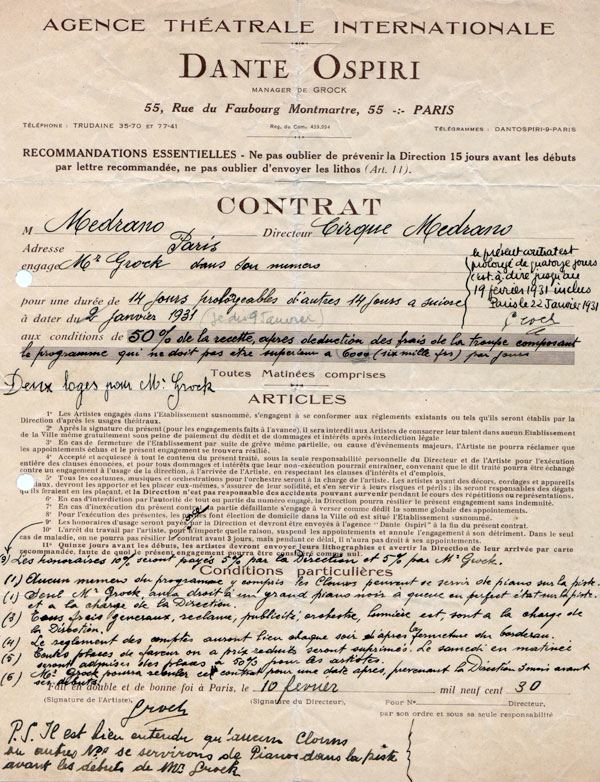 AGENCE THÉATRALE INTERNATIONALE
DANTE OSPIRI
MANAGER DE GROCK
55, Rue du Faubourg Montmartre, 55 -:- PARIS
TÉLÉPHONE : TRUDAINE 35-70 ET 77-41
Reg. du Com. 429.224
TÉLÉGRAMMES : DANTOSPIRI-9-PARIS
RECOMMANDATIONS ESSENTIELLES - Ne pas oublier de prévenir la Direction 15 jours avant les débuts
par lettre recommandée, ne pas oublier d'envoyer les lithos (Art. 11).
CONTRAT
M Medrano Directeur Cirque Medrano
Adresse Paris
engage Mr Grock dans son numero
le présent contrat est
prolongé de quatorze jours
c'est à dire jusqu'au
19 février 1931 inclus
Paris le 22 Janvier 1931
Grock
pour une durée de 14 jours prolongeables d'autres 14 jours a suivre
à dater du 2 janvier 1931 (le du 9 Janvier)
aux conditions de 50% de la recette, apres deduction des frais de la troupe composant
le programme qui ne doit pas etre superieur a 6000 (six mille frs) par jours
Toutes Matinées comprises
Deux loges pour Mr Grock
ARTICLES
1° Les Artistes engagés dans l'Etablissement susnommé, s'engagent à se conformer aux règlements existants ou tels qu'ils seront établis par la
Direction d'après les usages théâtraux.
2° Après la signature du présent (pour les engagements faits à l'avance), il sera interdit aux Artistes de consacrer leur talent dans aucun Etablissement
de la Ville même gratuitement sous peine de paiement du dédit et de dommages et intérêts après interdiction légale
3° En cas de fermeture de l'Etablissement par suite de grève même partielle, ou cause d'événements majeurs, l'Artiste ne pourra réclamer que
les appointements échus et le présent engagement se trouvera résilié.
4° Accepté et acquiescé à tout le contenu du présent traité, sous la seule responsabilité personnelle du Directeur et de l'Artiste pour l'exécution
entière des clauses énoncées, et pour tous dommages et intérêts que leur non-exécution pourrait entraîner, convenant que le dit traité pourra être échangé
contre un engagement à l'usage de la direction, à l'arrivée de l'Artiste, en respectant les clauses d'intérêts et d'emploi.
5° Tous les costumes, musiques et orchestrations pour l'orchestre seront à la charge de l'artiste. Les artistes ayant des décors, cordages et appareils
devront les apporter et les placer eux-mêmes, s'assurer de leur solidité, et s'en servir à leurs risques et périls ; ils seront responsables des dégâts
qu'ils feraient en les plaçant, et la Direction n'est pas responsable des accidents pouvant survenir pendant le cours des répétitions ou représentations.
6° En cas d'interdiction par l'autorité de tout ou partie du numéro engagé, la Direction pourra résilier le présent engagement sans indemnité.
7° En cas d'inexécution du présent la partie défaillante s'engage à verser comme dédit la somme globale des appointements.
8° Pour l'exécution des présentes, les font élection de domicile dans la Ville où est situé l'Etablissement susnommé.
9° Les honoraires d'usage seront payés par la Direction et devront être envoyés à l'agence "Dante Ospiri" à la fin du présent contrat.
10° L'arrêt du travail par l'artiste, pour n'importe quelle raison, suspend les appointements et annule l'engagement à son détriment. Dans le seul
cas de maladie, on ne pourra pas résilier le contrat avant 3 jours, mais pendant ce délai, il n'aura pas droit à ses appointements.
11° Quinze jours avant les débuts, les artistes devront envoyer leurs lithographies et avertir la Direction de leur arrivée par carte
recommandée, faute de quoi le présent engagement pourra être considéré comme nul.
9) Les honoraires 10% seront payés 5% par la Direction et 5% par Mr Grock.
Conditions particulières
(1) Aucun numero du programme y compris les Clowns peuvent se servir de piano sur la piste.
(2) Seul Mr Grock, aura droit a un grand piano noir a queue en perfect état sur la piste.
et a la charge de la Direction.
(3) Tous frais generaux, reclame, publicité, orchestre, lumière est, sont a la charge de
la Direction.
(4) Le reglement des comptes auront lieu chaque soir après fermeture des bordereau.
(5) Toutes places de faveur on a prix reduits seront suprimés. Le samedi en matinée
seront admises des places a 50% pour les artistes.
(6) Mr Grock pourra reculer ce contrat pour une date apres, prevenant la Direction 3 mois avant
ses debuts.
Fait en double et de bonne foi à Paris, le 10 fevrier mil neuf cent 30
(Signature de l'Artiste), (Signature du Directeur), Pour N° Directeur,
par son ordre et sous sa seule responsabilité
Grock
P.S. Il est bien entendu qu'aucun Clowns
ou autres Nos se servirons de Pianos dans la piste
avant les debuts de Mr Grock